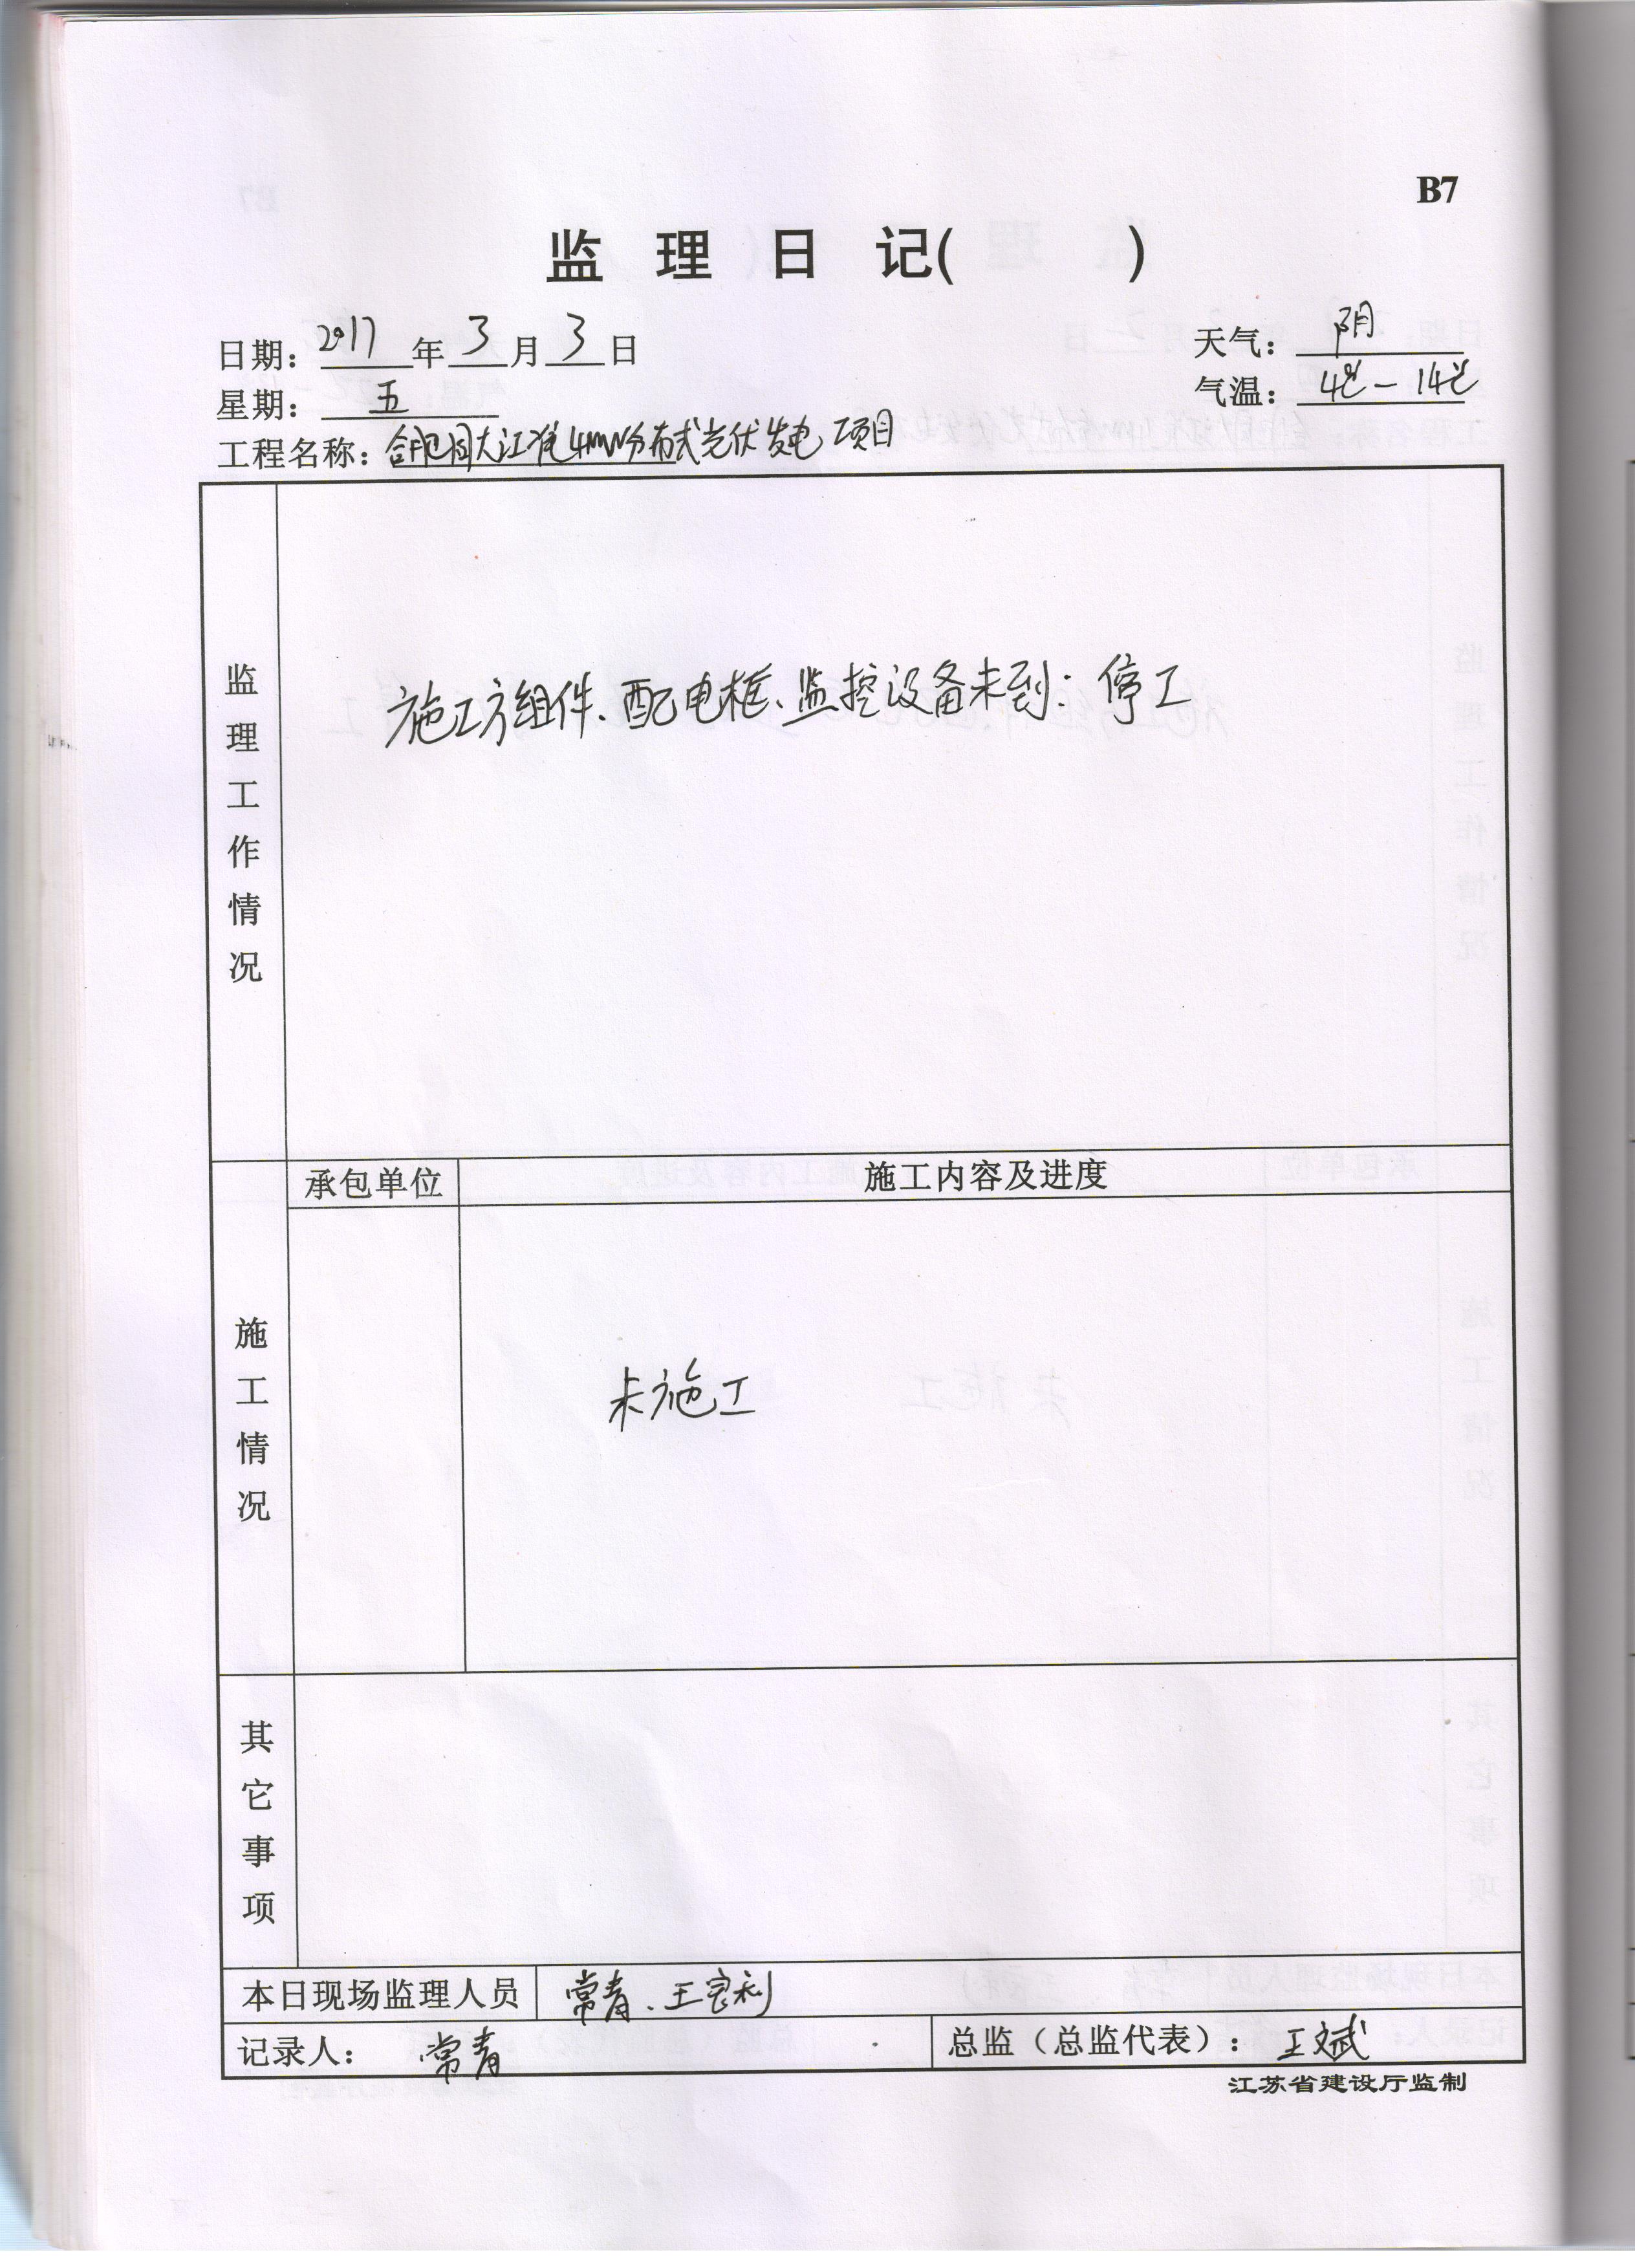 B7
监理日记( )
日期：2017年3月3日
天气：阴
星期：五
气温：4℃－14℃
工程名称：合肥阳大江淮4MW分布式光伏发电项目
监理工作情况
施工方组件、配电柜、监控设备未到：停工
承包单位
施工内容及进度
施工情况
未施工
其它事项
本日现场监理人员
常青、王良利
记录人：常青
总监（总监代表）：王斌
江苏省建设厅监制